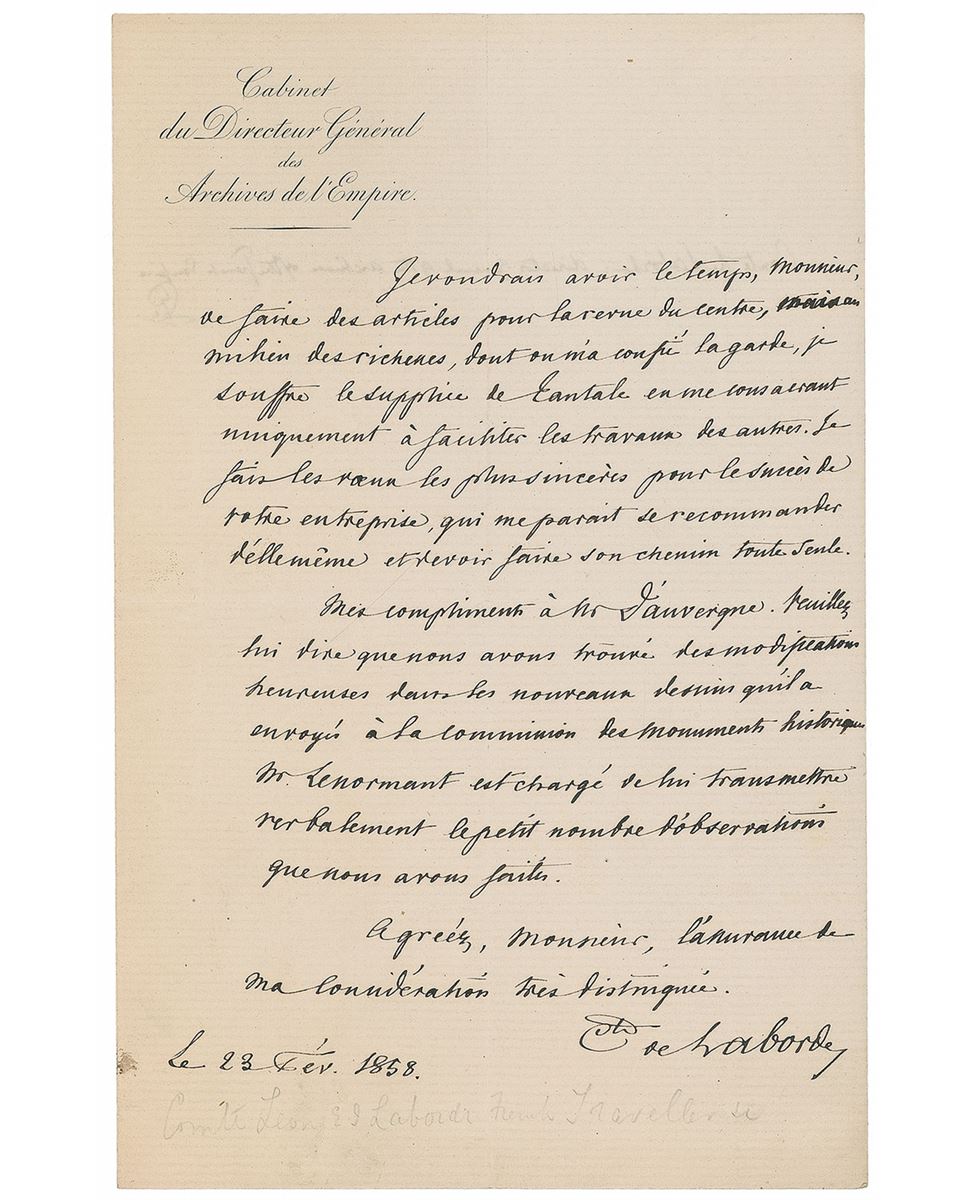 Cabinet
du Directeur Général
des
Archives de l'Empire.
Je voudrais avoir le temps, Monsieur,
de faire des articles pour la revue du centre, mais au
milieu des richesses, dont on m'a confié la garde, je
souffre le supplice de Tantale en me consacrant
uniquement à faciliter les travaux des autres. Je
fais les vœux les plus sincères pour le succès de
votre entreprise, qui me parait se recommander
d'elle même et devoir faire son chemin toute seule.
Mes compliments à Mr Dauvergne. Veuillez
lui dire que nous avons trouvé des modifications
heureuses dans les nouveaux dessins qu'il a
envoyés à la commission des monuments historiques
Mr. Lenormant est chargé de lui transmettre
verbalement le petit nombre d'observations
que nous avons faites.
Agréez, Monsieur, l'assurance de
ma considération très distinguée.
Cte de Laborde
Le 23 Fév. 1858.
Comte Leon Laborde French Traveller